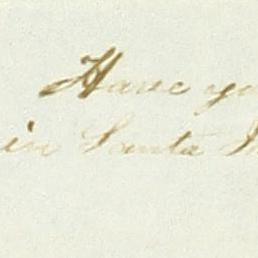 Have yo
in Santa